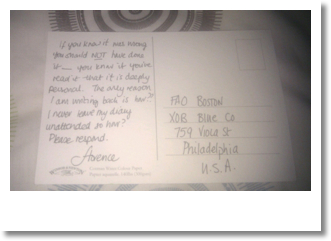 If you knew it was wrong
you should NOT have done
it — you know if you've
read it that it is deeply
personal. The only reason
I am writing back is how?
I never leave my diary
unattended so how?
Please respond.
Arience
FAO BOSTON
XOB Blue Co
759 Viola St
Philadelphia
U.S.A.